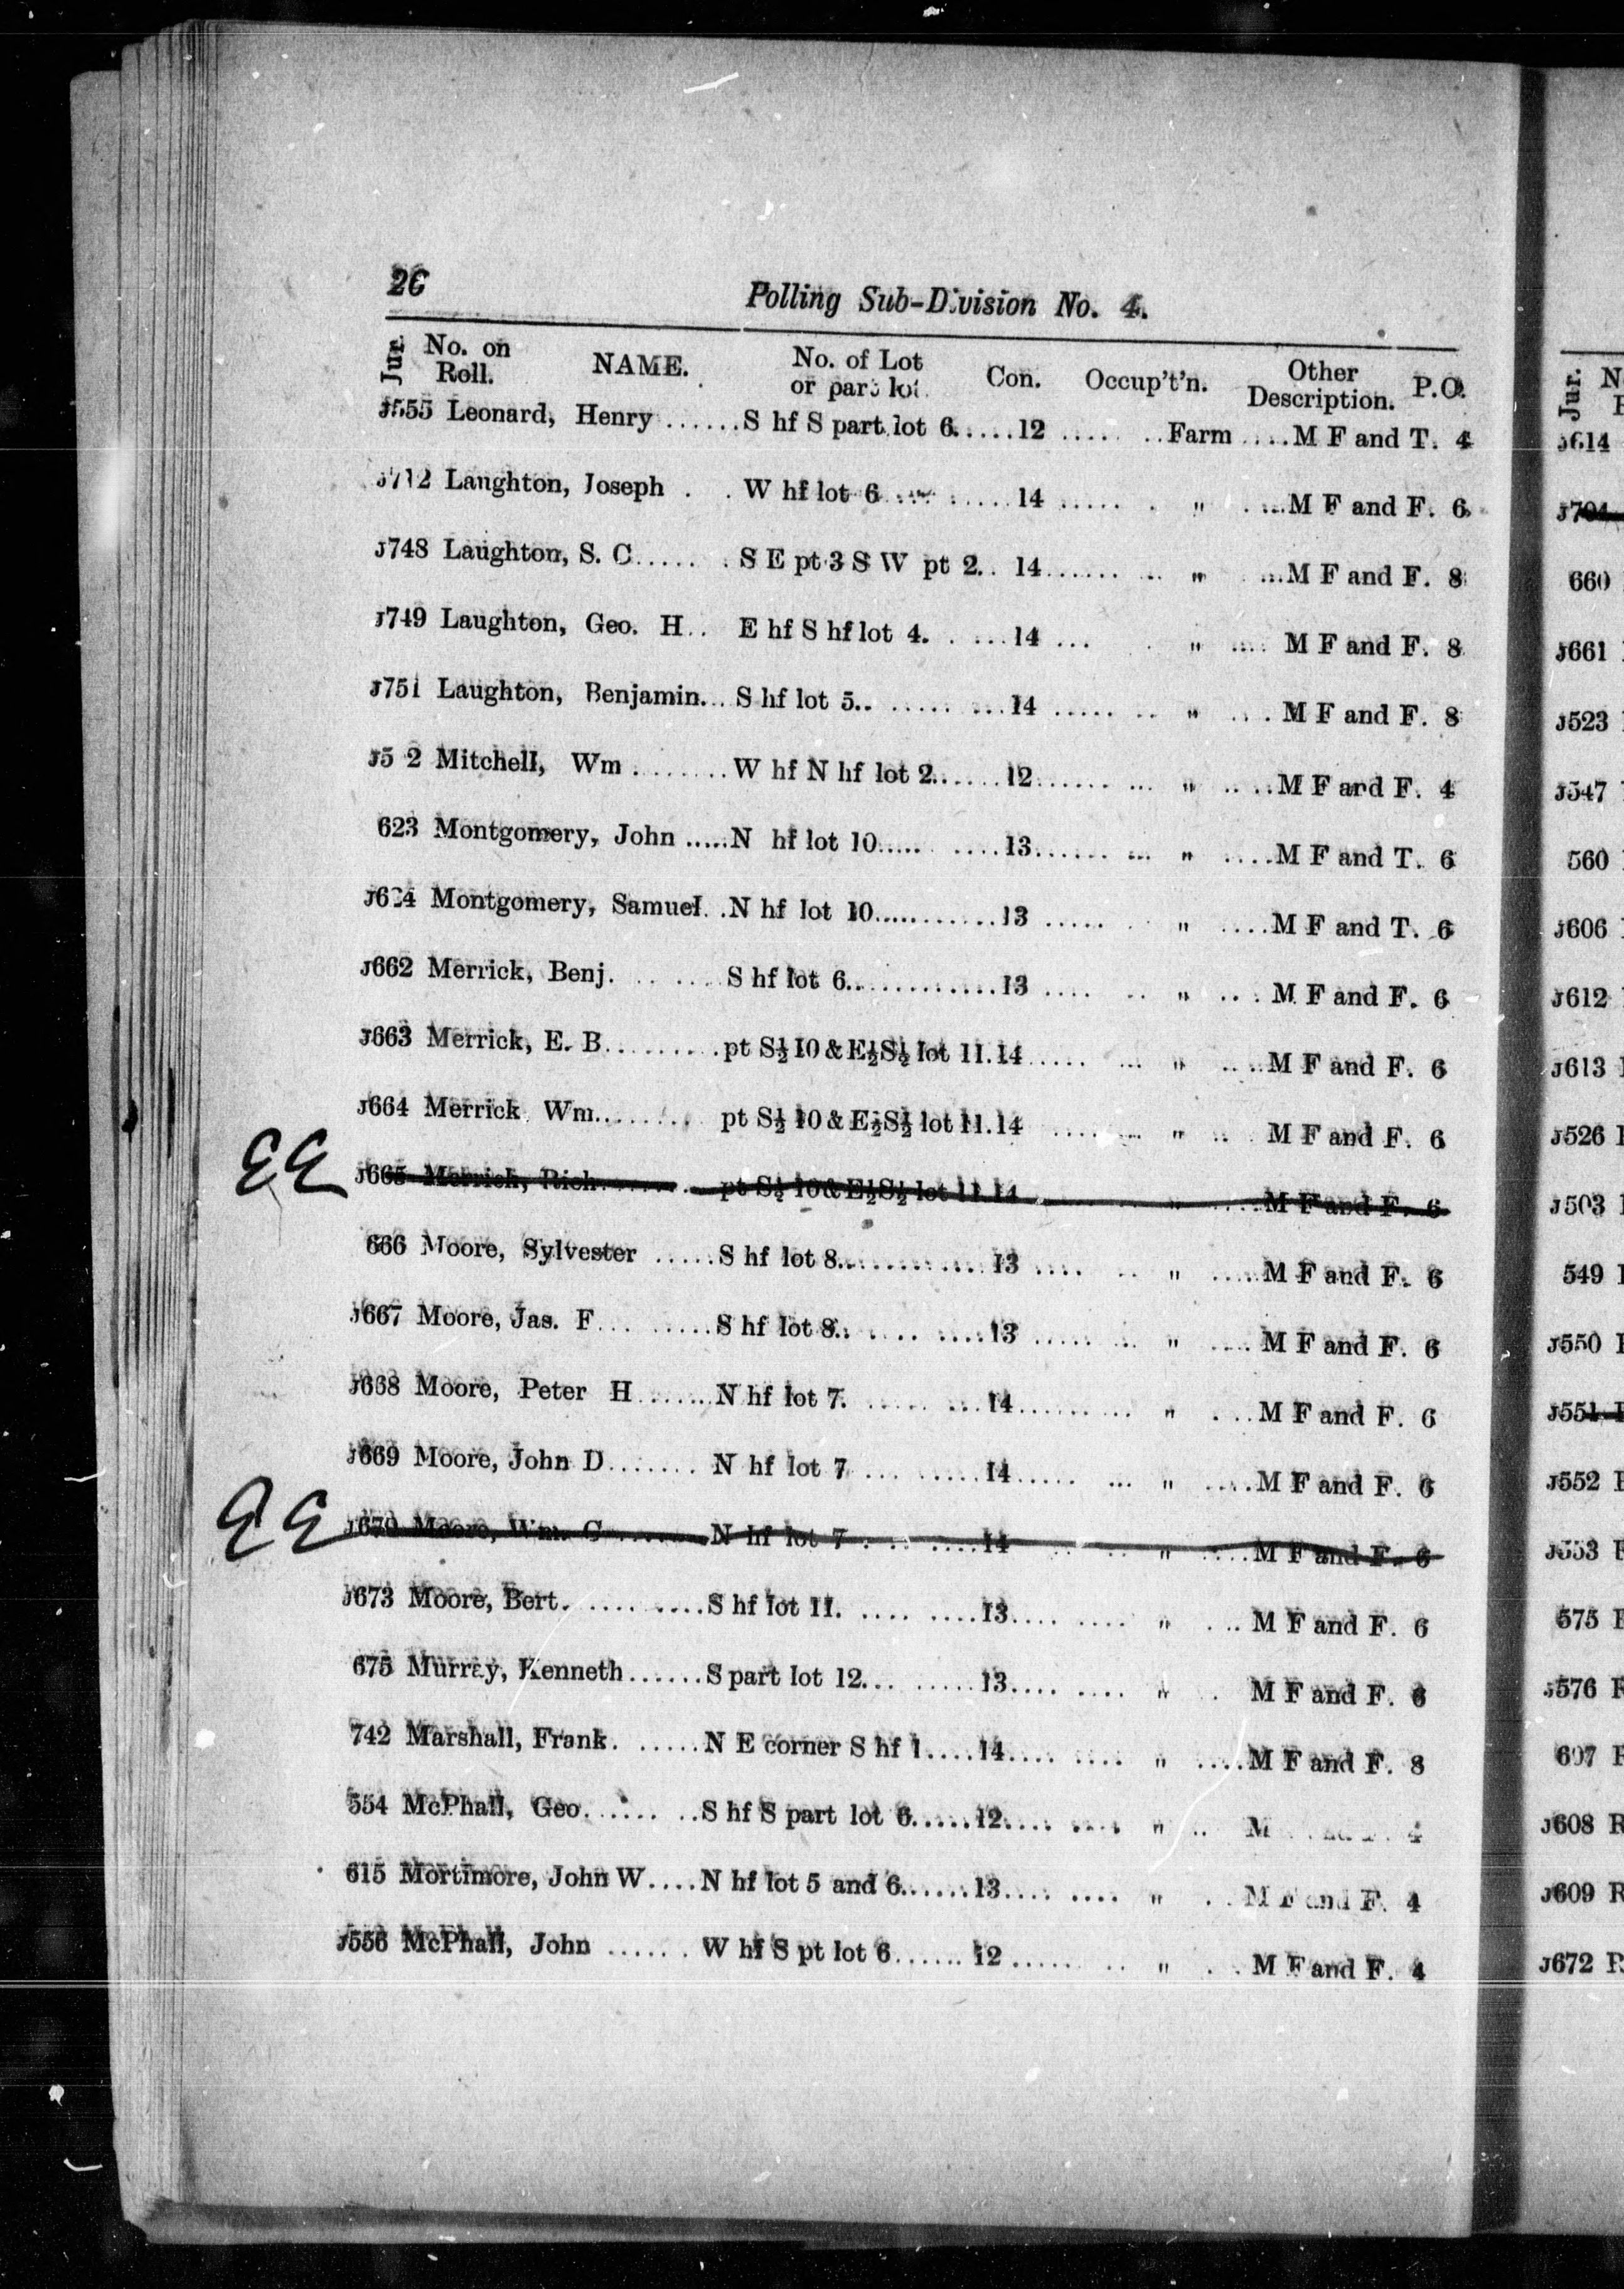 26
Polling Sub-Division No. 4.
Jur. No. on Roll. NAME. No. of Lot or part lot. Con. Occup't'n. Other Description. P.O.
J555 Leonard, Henry ...... S hf S part lot 6.....12 ..... ..Farm ....M F and T. 4
J712 Laughton, Joseph . . W hf lot 6 ... ......14 ..... . " ....M F and F. 6
J748 Laughton, S. C..... . S E pt 3 S W pt 2.. 14...... .. " ...M F and F. 8
J749 Laughton, Geo. H.. E hf S hf lot 4. . ...14 ... . " .... M F and F. 8
J751 Laughton, Benjamin... S hf lot 5.. ..... ...14 ..... .. " ... . M F and F. 8
J5 2 Mitchell, Wm ........W hf N hf lot 2......12...... ... " .. ..M F and F. 4
623 Montgomery, John .....N hf lot 10..... ....13...... ... " ....M F and T. 6
J6 4 Montgomery, Samuel. .N hf lot 10...........13 ..... . " ....M F and T. 6
J662 Merrick, Benj. . .. ....S hf lot 6.............13 .... .. " .. . M F and F. 6
J663 Merrick, E. B.........pt S½ 10 & E½S½ lot 11.14..... ... " ....M F and F. 6
J664 Merrick, Wm........ pt S½ 10 & E½S½ lot 11.14 ..... .. " .. M F and F. 6
EE J665 Merrick, Rich....... ..pt S½ 10 & E½S½ lot 11.14 " ....M F and F. 6
666 Moore, Sylvester .....S hf lot 8.............13 .... .. " .....M F and F. 6
J667 Moore, Jas. F... ......S hf lot 8.. .... ....13 ..... .. " .... M F and F. 6
J668 Moore, Peter H.......N hf lot 7. ..... ...14....... ... " . ...M F and F. 6
J669 Moore, John D....... N hf lot 7 .... .....14..... ... " ....M F and F. 6
EE J670 Moore, Wm. G .......N hf lot 7 . .. ....14 .. .. " ....M F and F. 6
J673 Moore, Bert. .... .....S hf lot 11. .... ....13.... .... " . .. M F and F. 6
675 Murray, Kenneth......S part lot 12... .....13.... .... " . M F and F. 6
742 Marshall, Frank. ......N E corner S hf 1....14.... .... " ....M F and F. 8
554 McPhall, Geo...... ..S hf S part lot 6.....12.... .... " .. M 4
615 Mortimore, John W....N hf lot 5 and 6......13.... .... " . .M F and F. 4
J556 McPhall, John ...... . W hf S pt lot 6...... 12 ..... .. " . . M F and F. 4
Jur.
J614
J704
660
J661
J523
J547
560
J606
J612
J613
J526
J503
549
J550
J551
J552
J553
575
J576 R
607
J608 R
J609 R
J672